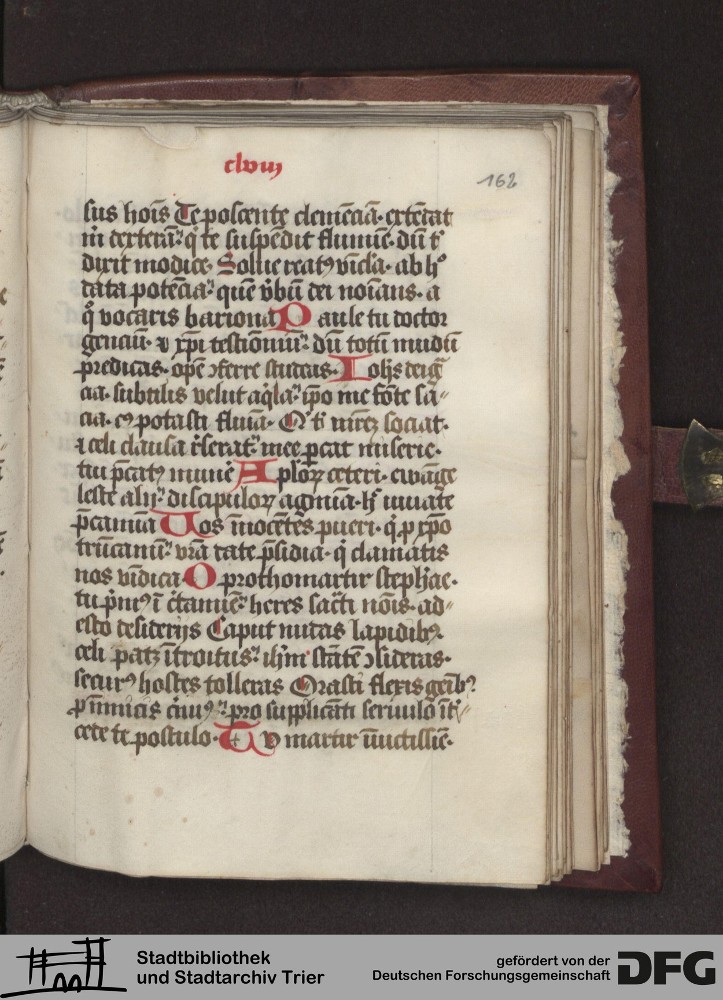 clviij
162
sus hoīs Te poscente clemēciā· extēdat
m̄ dexterā· q̄ te suspēdit fluuiē· dū tͥ
dixit modice· Solue reatꝰ vīcla· ab hͦ
data potēcia· quē v̄bū dei noīans· a
q̊ vocaris bariona Paule tu doctor
genciū· ⁊ xp̄i testiōniū· dū totū mūdū
predicas· opē ↄferre studeas· Ioh̄s deigͣ
cia· subtilis velut aq̄la· ip̄o me fōte sā„
cia· potasti fluīa·
⁊ celi clausa
tu pͨcatꝰ munīe Ap̄loꝝ ceteri· ewāge
leste alij· discipuloꝝ agmīa· hͨ iuuate
p̄camīa Uos īnocētes pueri· q̄ ꝓ xp̄o
trūcamī· vr̄a date p̄sidia· q̄ clamatis
nos vīdica O prothomartir stephāe·
tu p̄mꝰ ī c̄tamīe· heres sac̄ti nōis· ad„
esto desiderijs Caput nudas lapidibꝫ
celi patꝫ ītroitus· ih̄m stātē ↄsideras·
securꝰ hostes tolleras Orasti flexis geībꝫ
ꝓ inimicis · pro supplicāti seruulo īt„
cede te postulo· Tu martir īuictissīe·
Stadtbibliothek
und Stadtarchiv Trier
gefördert von der
Deutschen Forschungsgemeinschaft
DFG